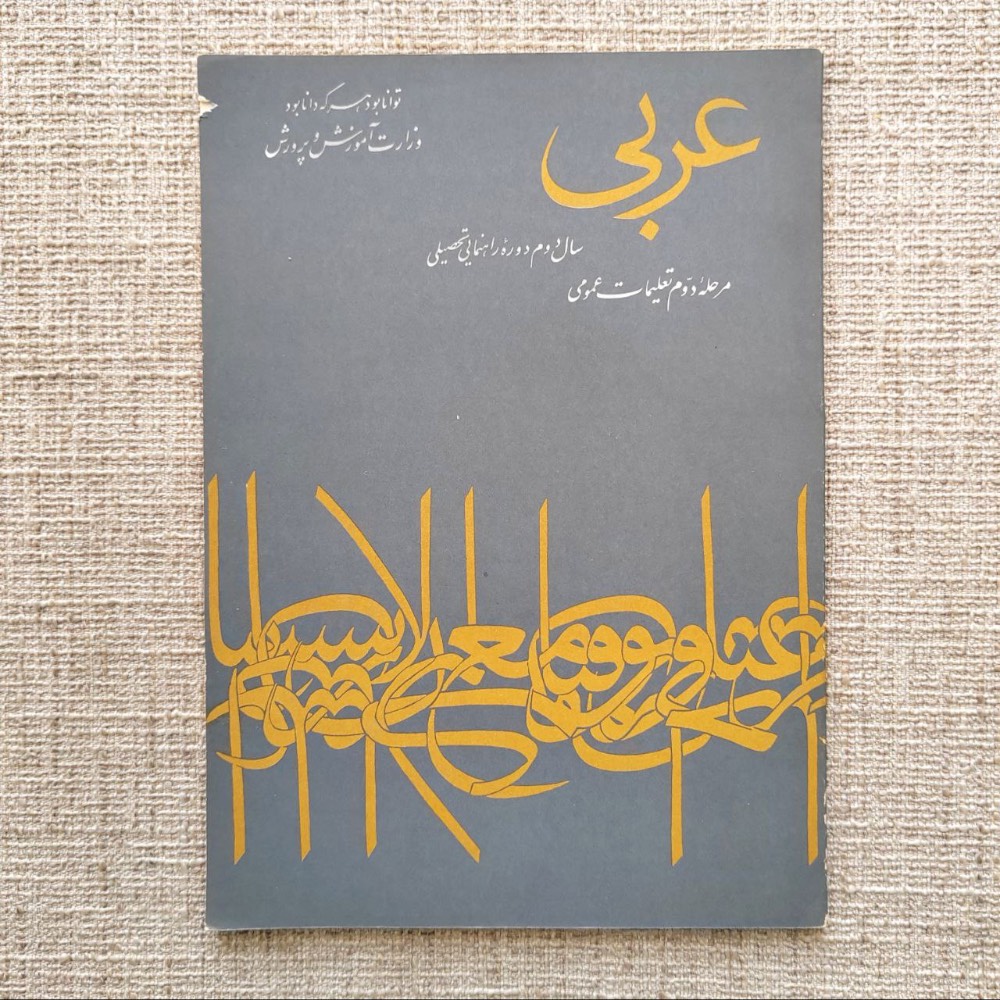 عربی
توانا بود هر که دانا بود
وزارت آموزش و پرورش
سال دوم دورهٔ راهنمایی تحصیلی
مرحلهٔ دوّم تعلیمات عمومی